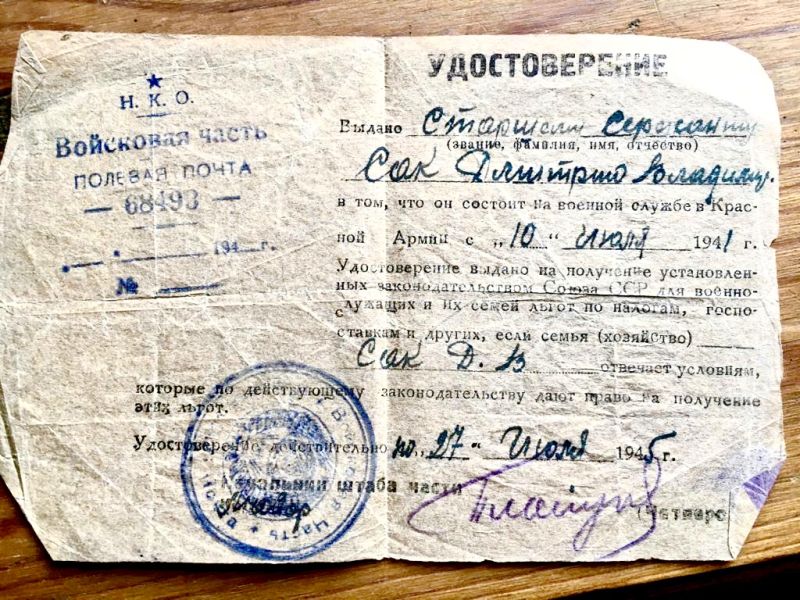 ★
Н. К. О.
Войсковая часть
ПОЛЕВАЯ ПОЧТА
— 68493 —
194 г.
№
УДОСТОВЕРЕНИЕ
Выдано Старшему Сержанту
(звание, фамилия, имя, отчество)
Сак Дмитрию Владимир.
в том, что он состоит на военной службе в Крас-
ной Армии с „10" Июля 1941 г.
Удостоверение выдано на получение установлен-
ных законодательством Союза ССР для военно-
служащих и их семей льгот по налогам, госпо-
ставкам и других, если семья (хозяйство)
Сак Д. В отвечает условиям,
которые по действующему законодательству дают право на получение
этих льгот.
Удостоверение действительно по „27" Июля 1945 г.
Начальник штаба части